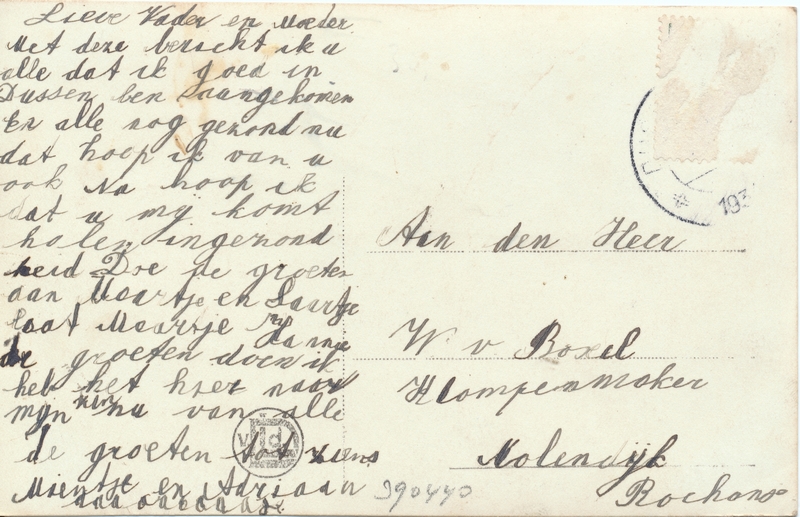 Lieve Vader en Moeder
Met deze bericht ik u
alle dat ik goed in
Dussen ben aangekomen
En alle nog gezond nu
dat hoop ik van u
ook Na hoop ik
dat u mij komt
halen ingezond
heid Doe de groeten
aan Maartje en Saartje
laat Maartje
de groeten doen ik
heb het hier naar
mijn zin nu van alle
de groeten tot ziens
Mientje en Adriaan
Aan den Heer
W. v Boxel
Klompenmaker
Molendijk
Rochans
193
390440